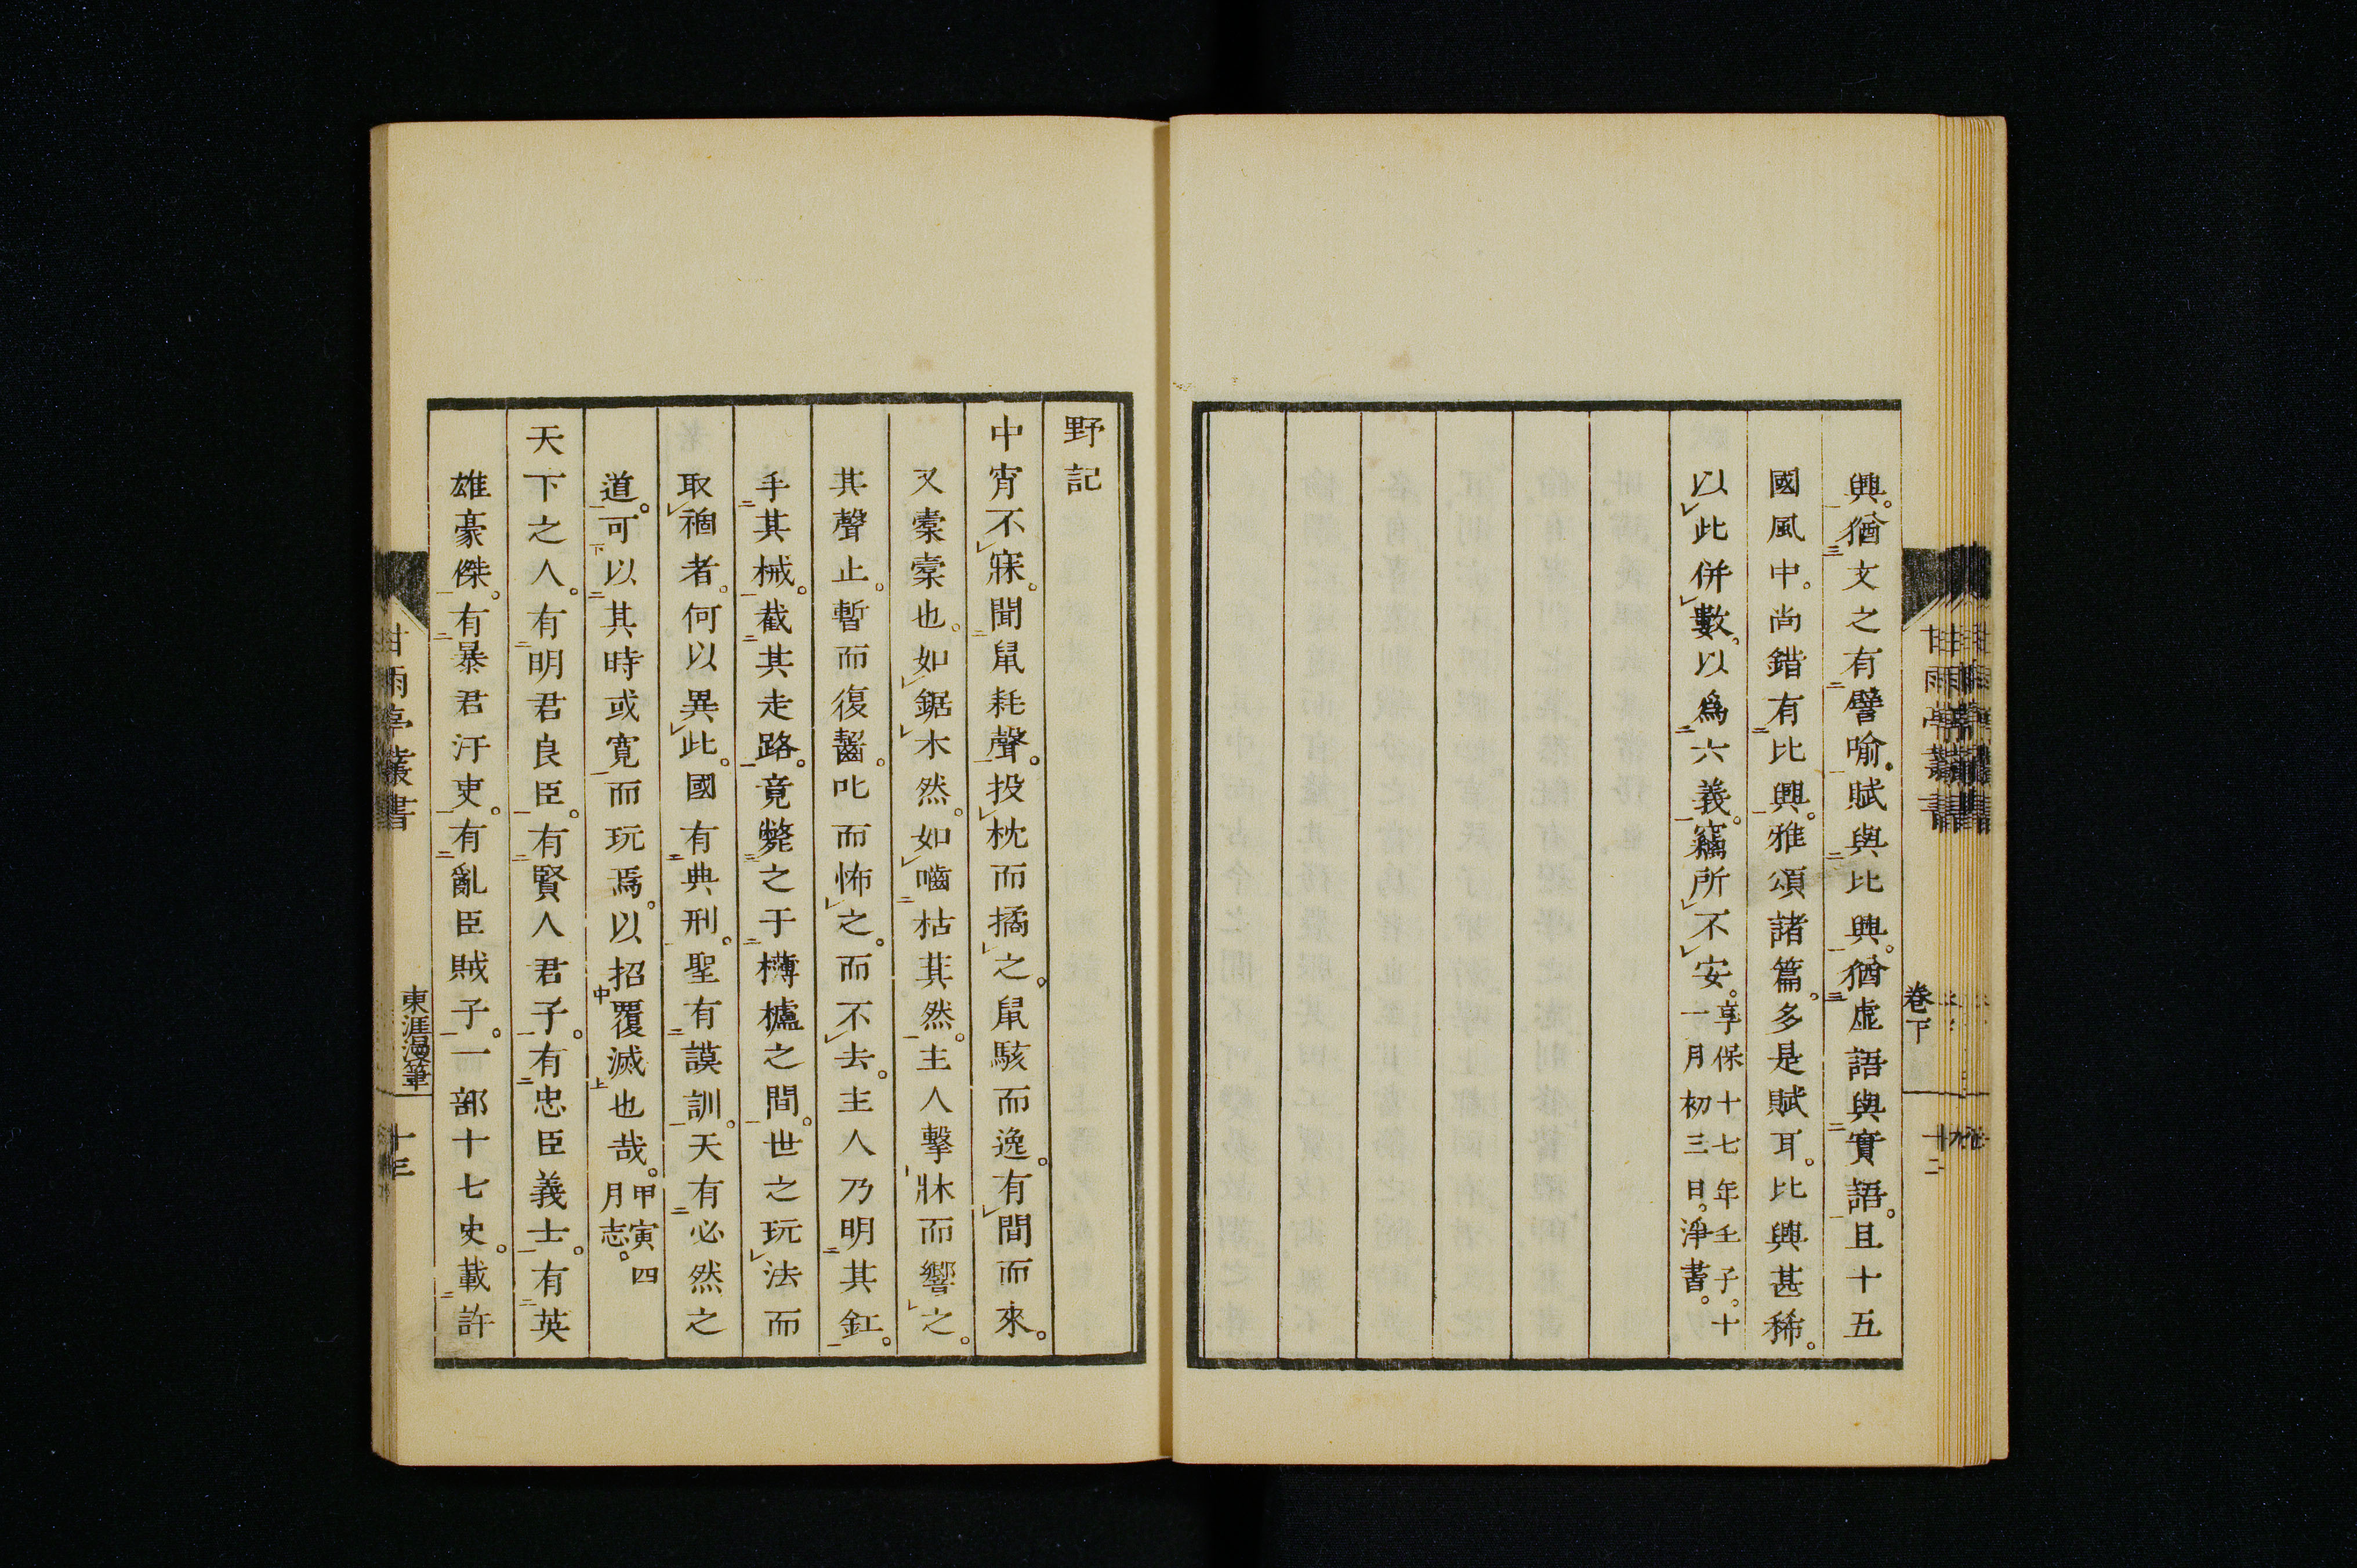 興。猶文之有譬喻。賦與比興。猶虛語與實語。且十五
國風中。尚錯有比興。雅頌諸篇。多是賦耳。比興甚稀。
以此併數。以爲六義。竊所不安。享保十七年壬子。十
一月初三日。淨書。
卷下
十二
甘雨亭叢書
野記
中宵不寐。聞鼠耗聲。投枕而擿之。鼠駭而逸。有間而來。
又橐橐也。如鋸木然。如嚙枯萁然。主人擊牀而響之。
其聲止。暫而復齧。叱而怖之。而不去。主人乃明其釭。
手其械。截其走路。竟斃之于欂櫨之間。世之玩法而
取禍者。何以異此。國有典刑。聖有謨訓。天有必然之
道。可以其時或寬而玩焉。以招覆滅也哉。甲寅四
月志。
天下之人。有明君良臣。有賢人君子。有忠臣義士。有英
雄豪傑。有暴君汙吏。有亂臣賊子。一部十七史。載許
甘雨亭叢書
東涯漫筆
十三